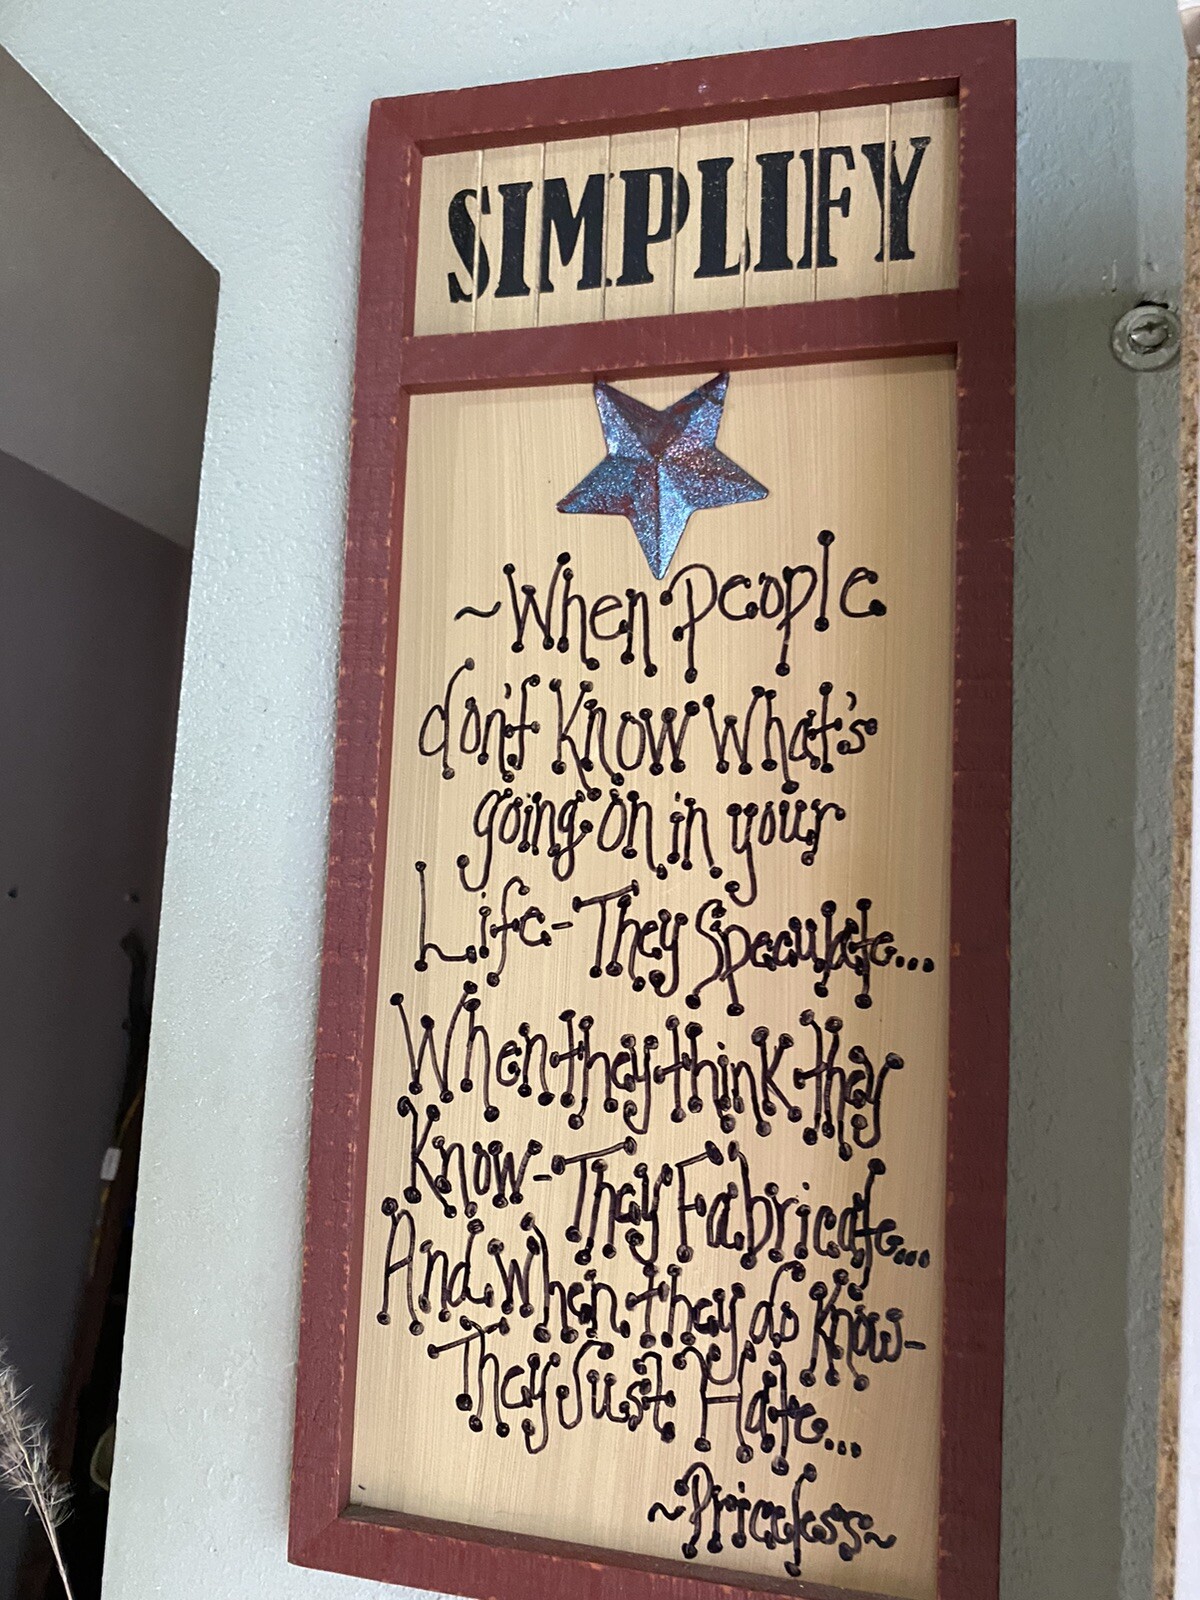 SIMPLIFY
~When People
don't Know What's
going on in your
Life-They Speculate...
When they think they
Know-They Fabricate...
And when they do know-
They Just Hate...
~Priceless~